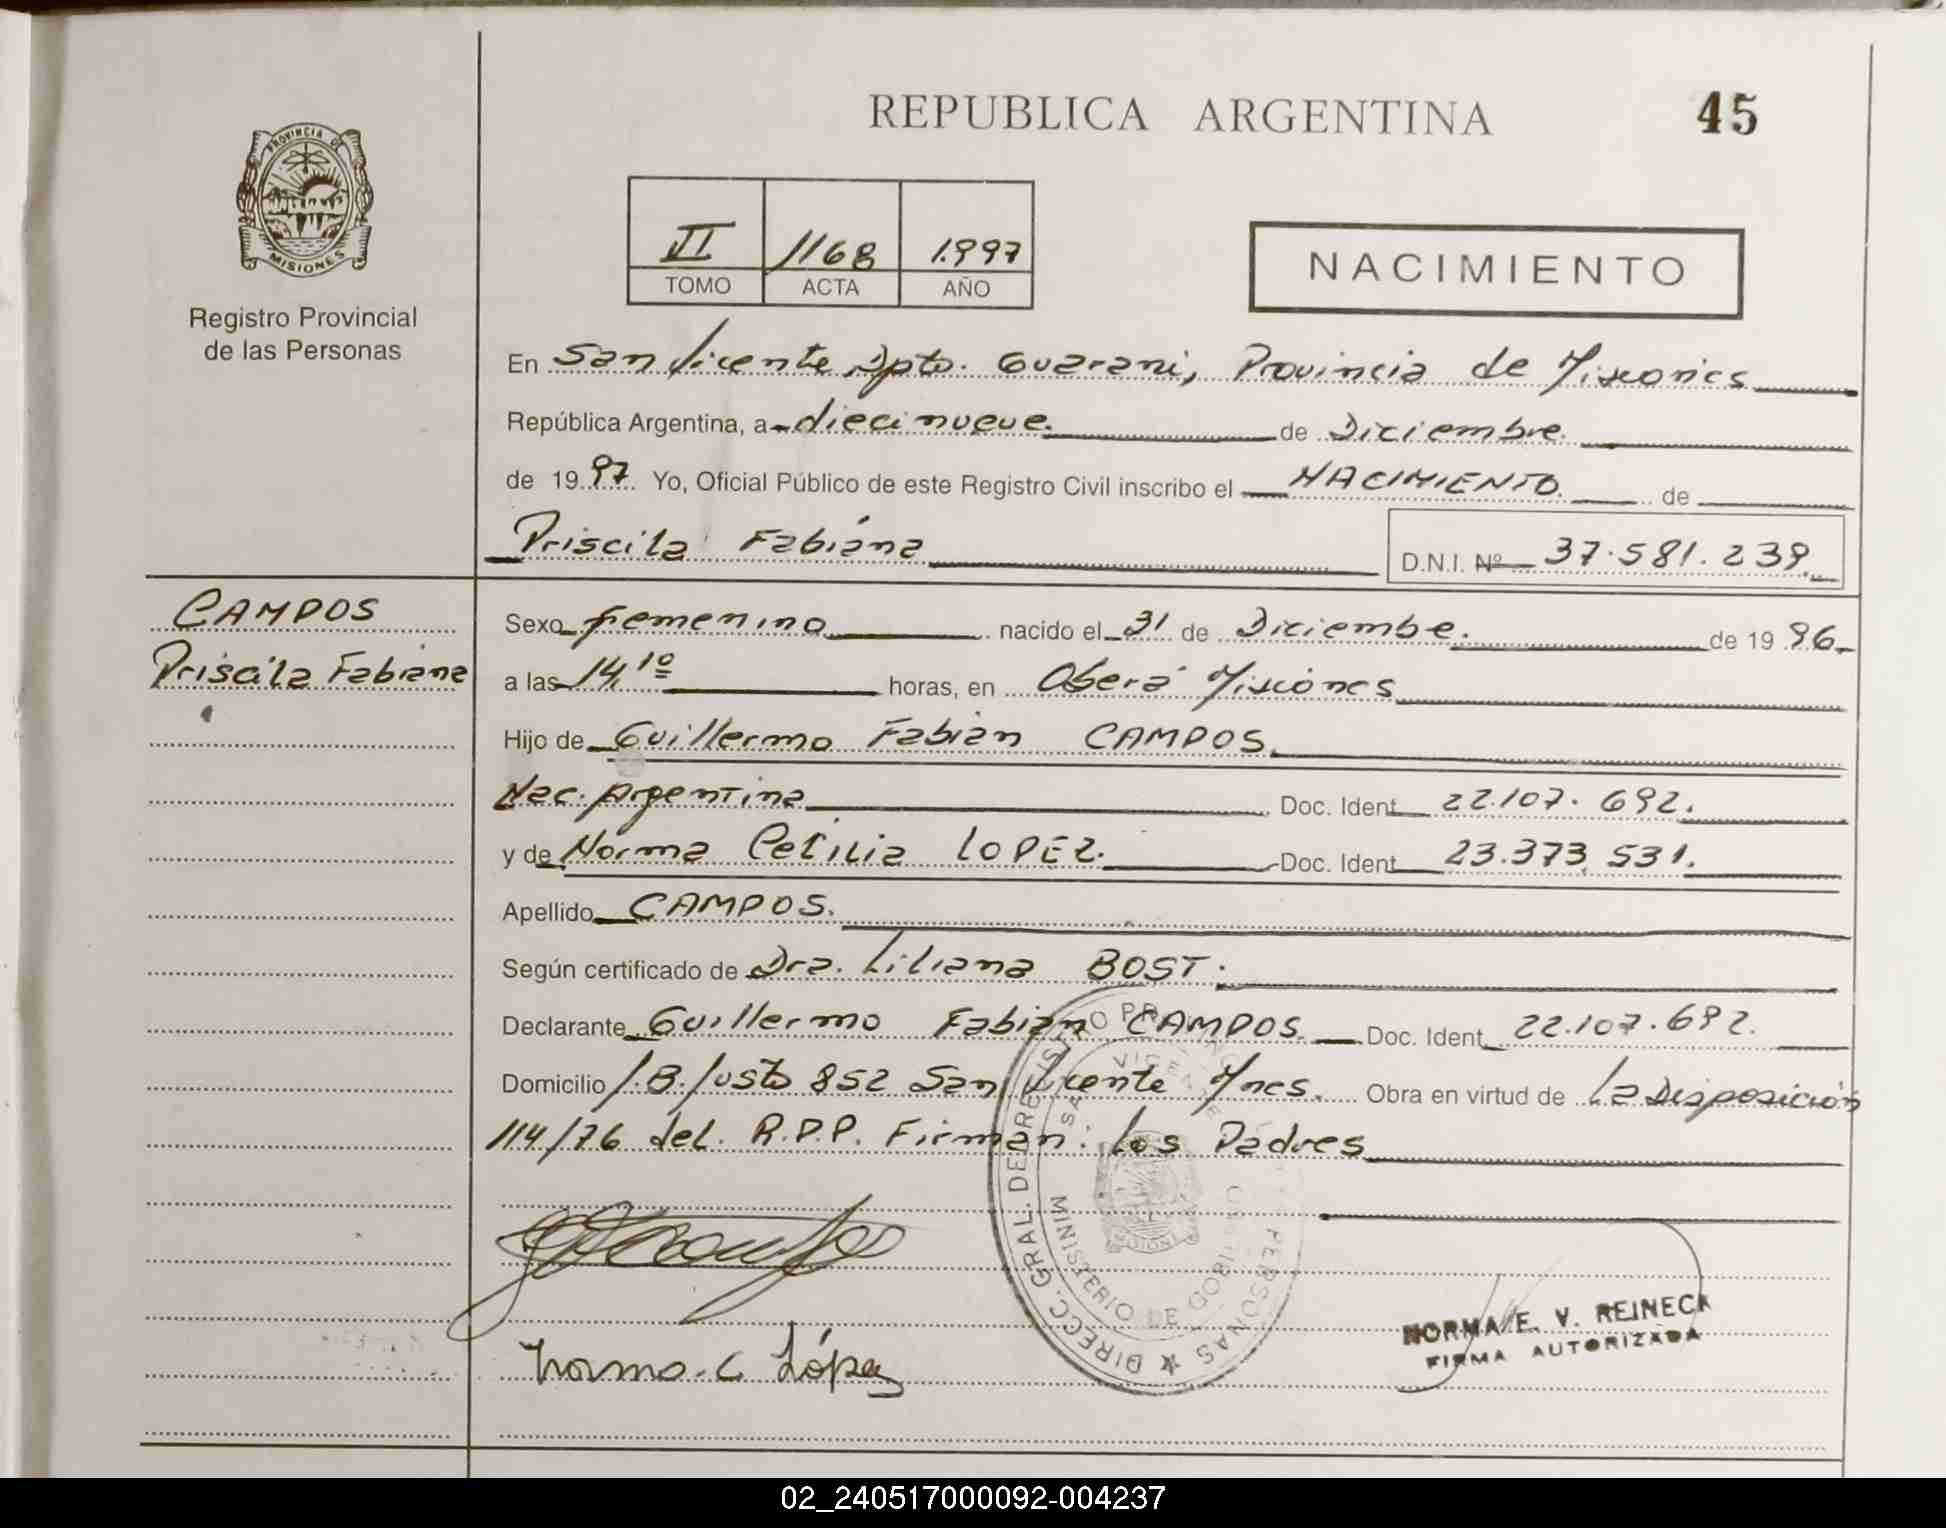 REPUBLICA ARGENTINA
45
PROVINCIA DE
MISIONES
Registro Provincial
de las Personas
II 1168 1.997
TOMO ACTA AÑO
NACIMIENTO
En San Vicente Dpto. Guarani, Provincia de Misiones
República Argentina, a diecinueve. de Diciembre.
de 19 97 Yo, Oficial Público de este Registro Civil inscribo el NACIMIENTO. de
Priscila Fabiána
D.N.I. Nº 37.581.239.
CAMPOS
Priscila Fabiana
Sexo femenino nacido el 31 de Diciembe. de 19 96.
a las 14,10 horas, en Oberá Misiones
Hijo de Guillermo Fabian CAMPOS.
Nac. Argentina Doc. Ident. 22.107.692.
y de Norma Cecilia LOPEZ. Doc. Ident. 23.373.531.
Apellido CAMPOS.
Según certificado de Dra. Liliana BOST.
Declarante Guillermo Fabian CAMPOS. Doc. Ident. 22.107.692.
Domicilio J.B. Justo 852 San Vicente Mnes. Obra en virtud de La Disposición
114/76 del. R.P.P. Firman. Los Padres
DIRECC. GRAL. DEL REGISTRO PERSONAS
MINISTERIO DE GOBIERNO
MISIONES
Norma. C López
NORMA E. V. REINECK
FIRMA AUTORIZADA
02_240517000092-004237